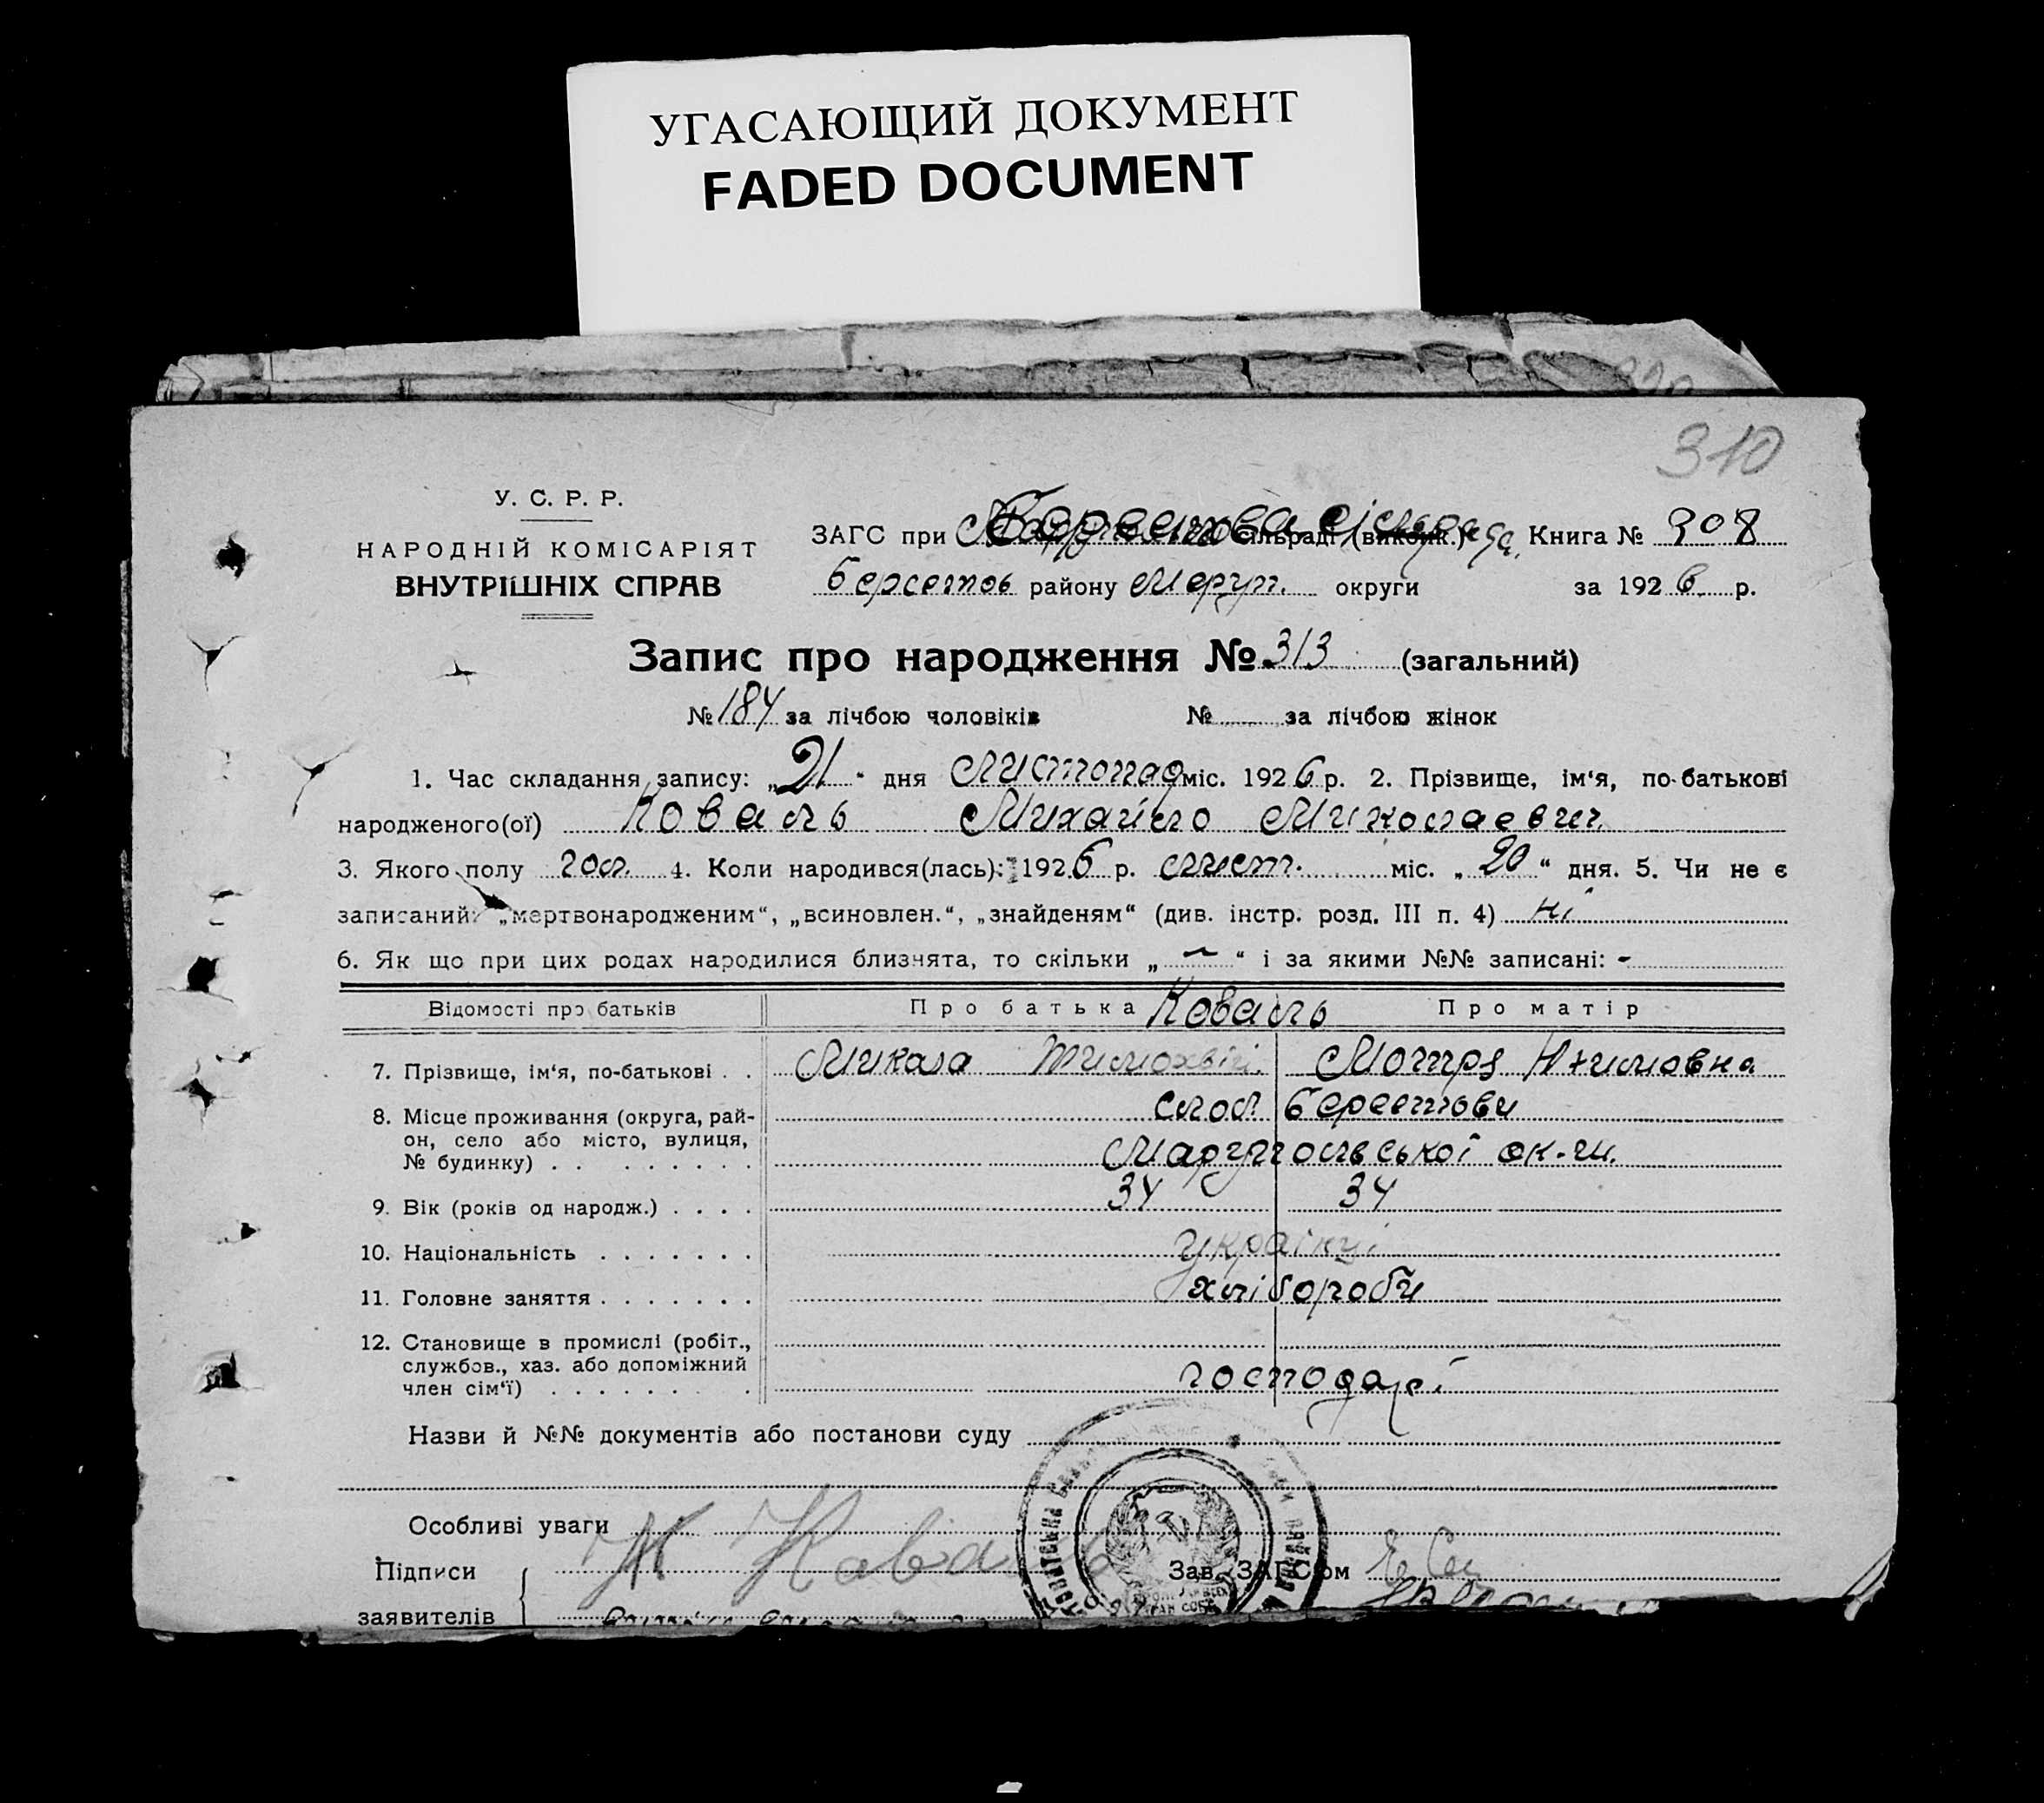 УГАСАЮЩИЙ ДОКУМЕНТ
FADED DOCUMENT
310
У. С. Р. Р.
НАРОДНІЙ КОМІСАРІЯТ
ВНУТРІШНІХ СПРАВ
ЗАГС при сільраді (викон.) Книга № 908
Берестов району Меруп. округи за 1926 р.
Запис про народження № 313 (загальний)
№ 184 за лічбою чоловіків № за лічбою жінок
1. Час складання запису: „21“ дня Листопад міс. 1926 р. 2. Прізвище, ім‘я, по-батькові
народженого(ої) Коваль Михайло Миколаевич
3. Якого полу чол. 4. Коли народився(лась): 1926 р. лист. міс. „20“ дня. 5. Чи не є
записаний: „мертвонародженим“, „всиновлен.“, „знайденям“ (див. інстр. розд. III п. 4) ні
6. Як що при цих родах народилися близнята, то скільки „-“ і за якими №№ записані: -
Відомості про батьків Про батька Коваль Про матір
7. Прізвище, ім‘я, по-батькові . . Микола Мотря
8. Місце проживання (округа, рай-
он, село або місто, вулиця,
№ будинку) . . . . . . . . слоб Берестови
Маріупольської ок-ги.
9. Вік (років од народж.) . . . . 34 34
10. Національність . . . . . . . українці
11. Головне заняття . . . . . . . хлібороби
12. Становище в промислі (робіт.,
службов., хаз. або допоміжний
член сім‘ї) . . . . . . . . господарі
Назви й №№ документів або постанови суду
Особливі уваги
Підписи Зав. ЗАГС‘ом
заявителів